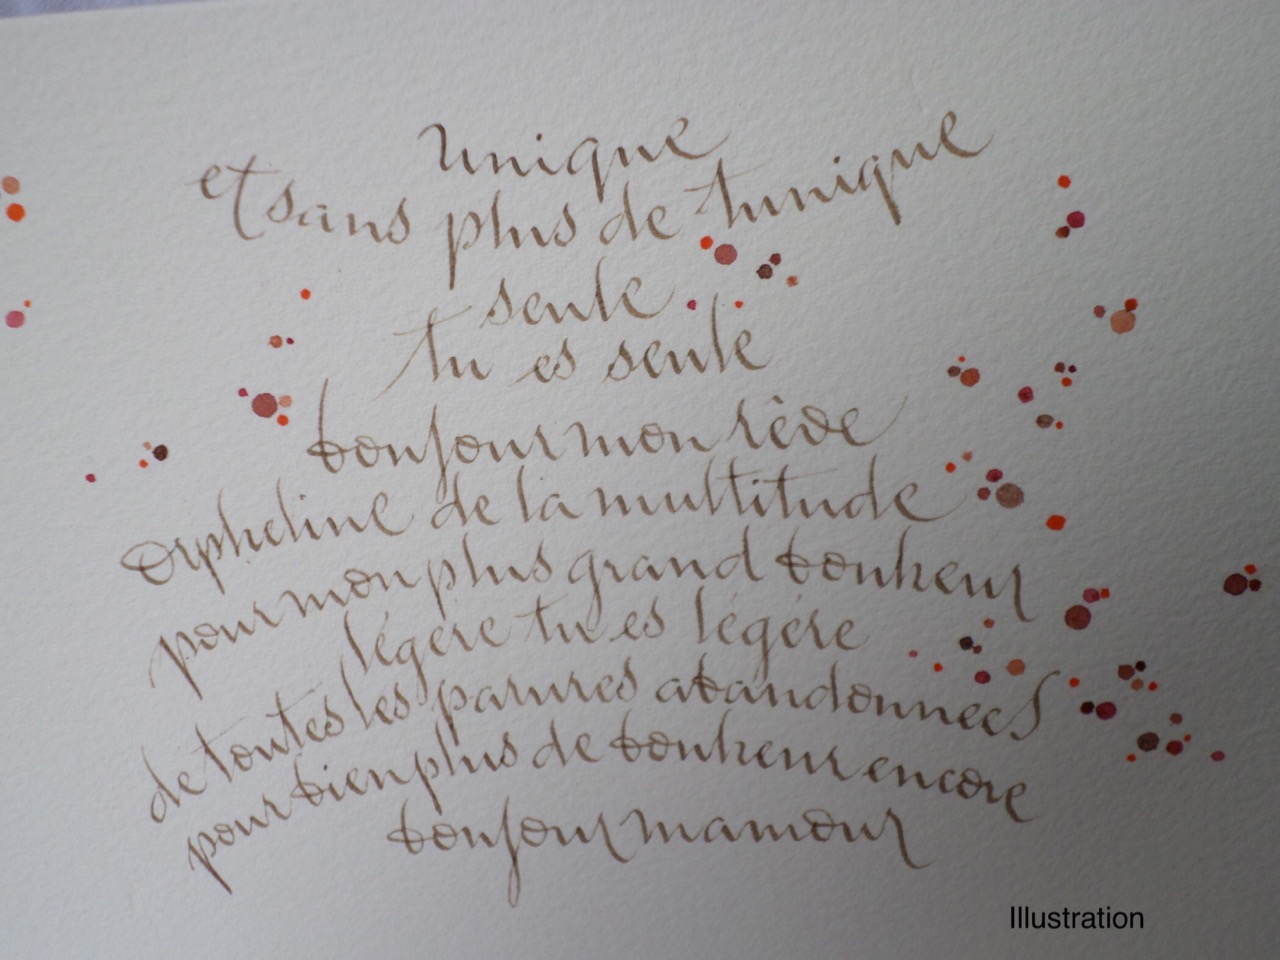 unique
et sans plus de tunique
seule
tu es seule
bonjour mon rêve
orpheline de la multitude
pour mon plus grand bonheur
légère tu es légère
de toutes les parures abandonnées
pour bien plus de bonheur encore
bonjour mamour
Illustration